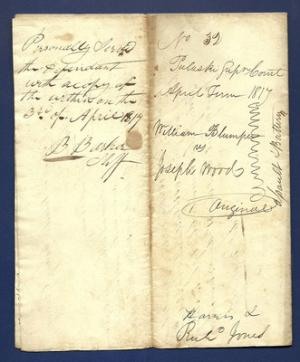 Personally Served
the defendant
with a copy of
the within on the
3rd of April 1817
Shff
No 32
Pulaski Supr Court
April Term 1817
William Blumper
vs
Joseph Wood
Assault & Battery
Original
Harris &
Jones